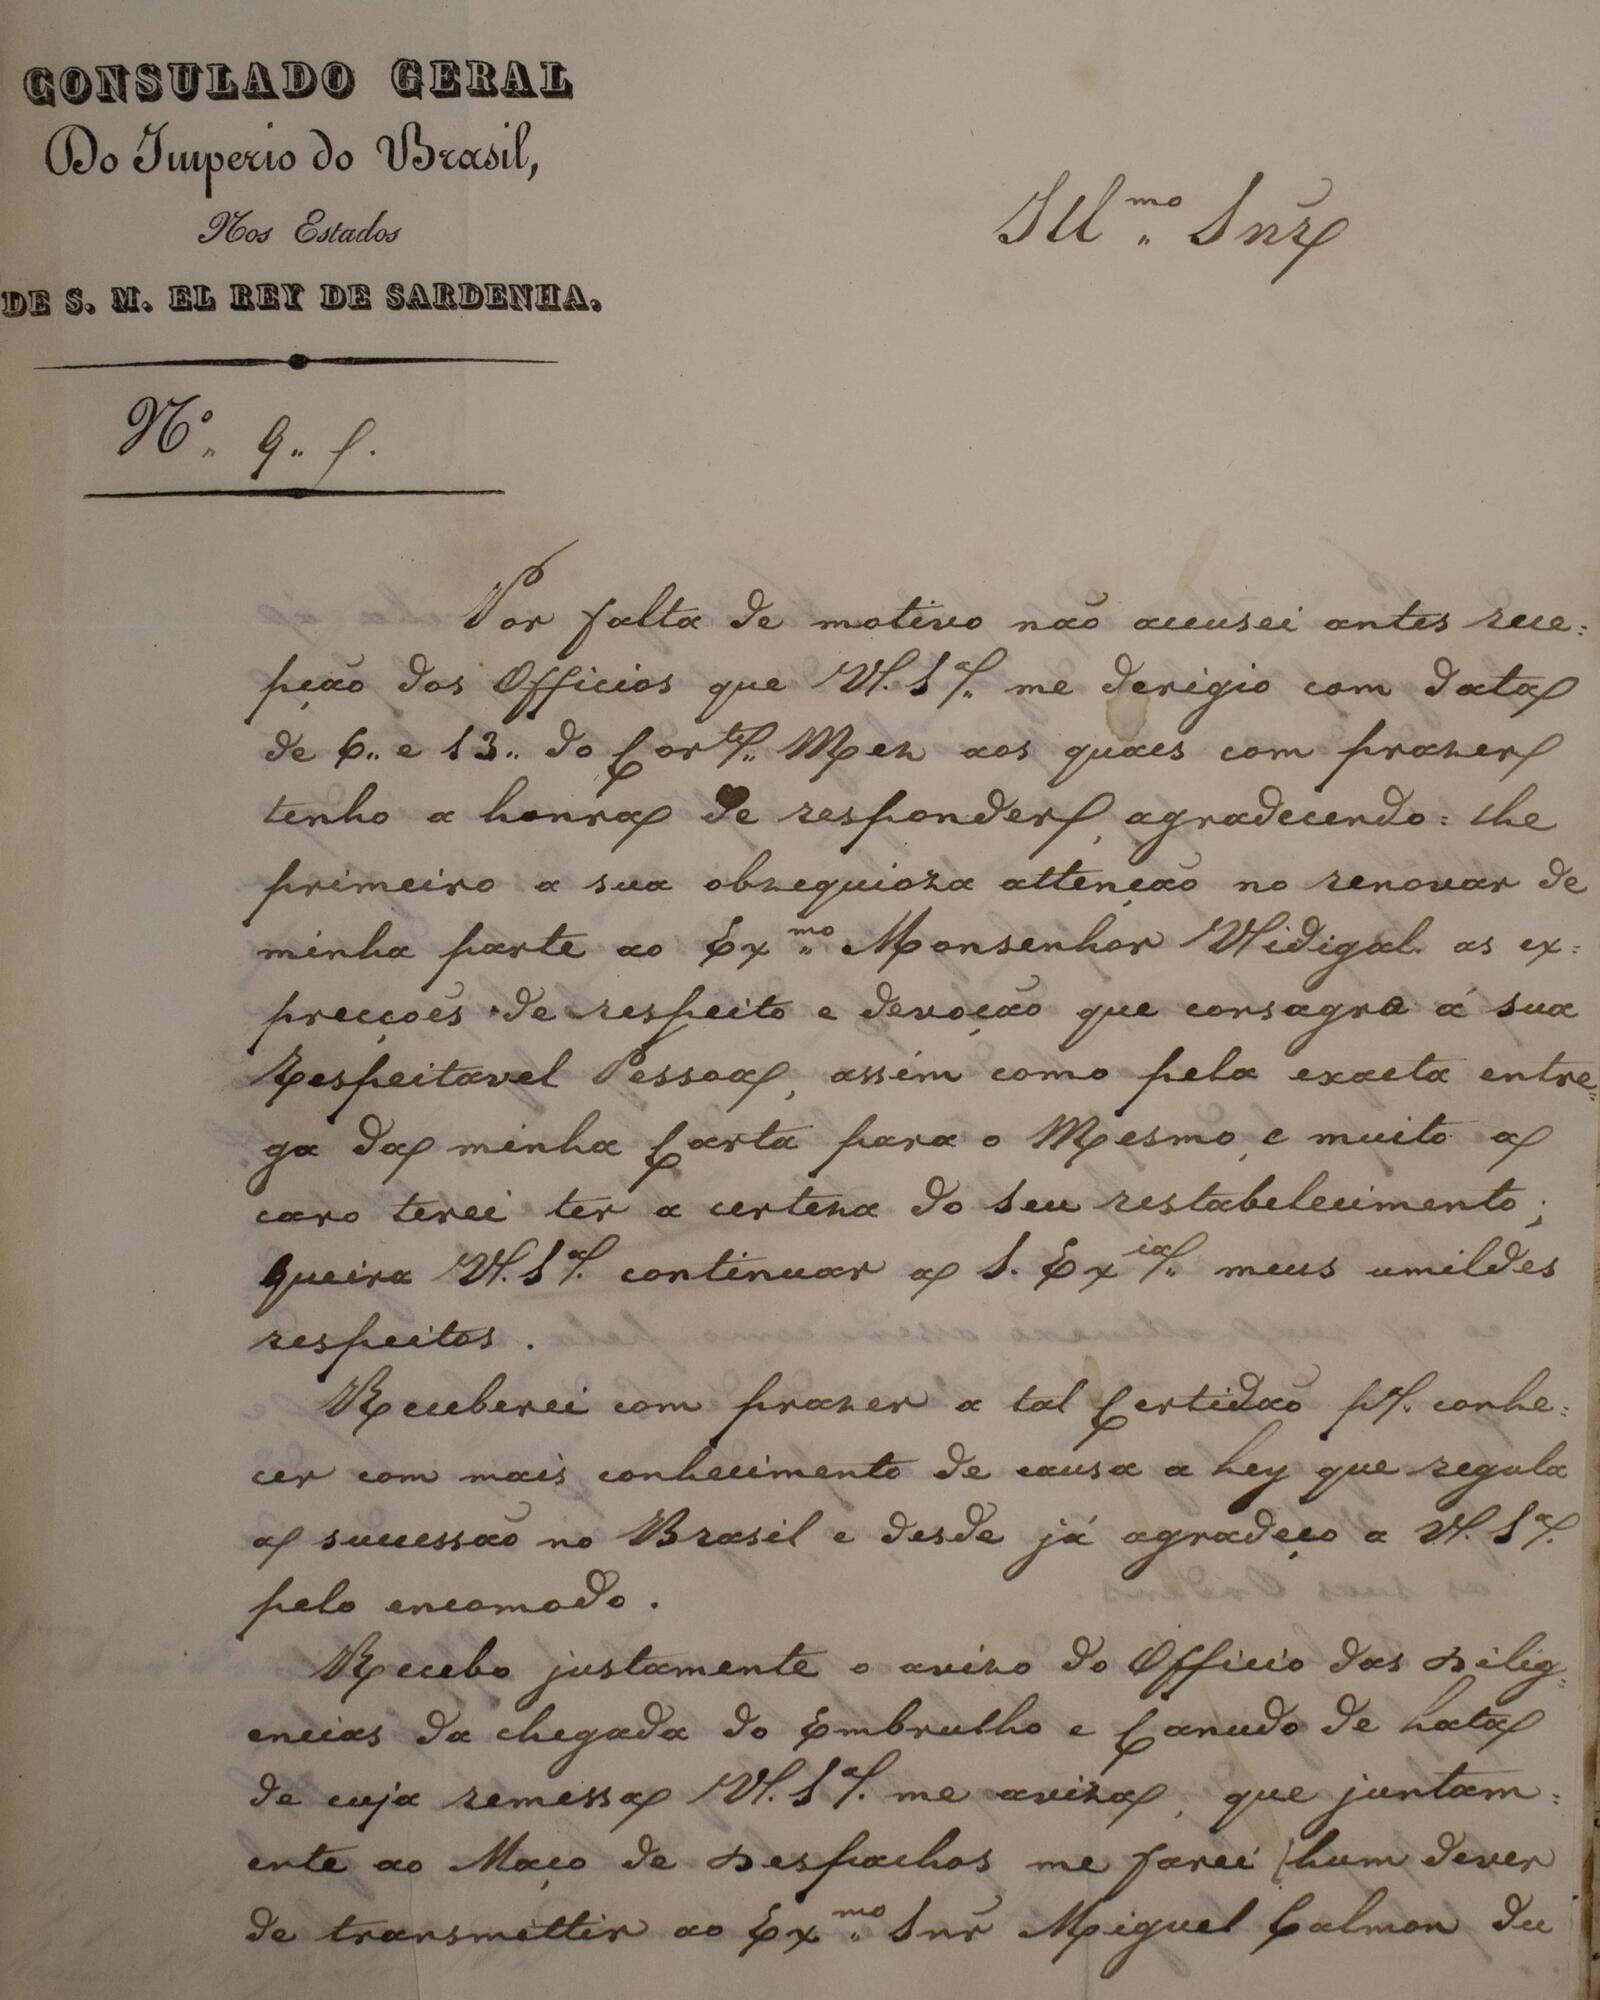 CONSULADO GERAL
Do Imperio do Brasil,
Nos Estados
DE S. M. EL REY DE SARDENHA.
Nº. 9.
Illmo. Snr
Por falta de motivo não accusei antes rece:
pção dos Officios que V. Sa. me derigio com data
de 6.. e 13.. do Corte. Mez aos quaes com prazer
tenho a honra de responder, agradecendo: lhe
primeiro a sua obzequioza attenção no renovar de
minha parte ao Exmo. Monsenhor Vidigal as ex:
precções de respeito e devoção que consagro á sua
Respeitavel Pessoa, assim como pela exacta entre:
ga da minha Carta para o Mesmo, e muito a
caro terei ter a certeza do seu restabelecimento;
Queira V. Sa. continuar a S. Excia. meus umildes
respeitos.
Receberei com prazer a tal Certidão pa. conhe:
cer com mais conhecimento de causa a Ley que regula
a successão no Brasil e desde já agradeço a V. Sa.
pelo encomodo.
Recebo justamente o avizo do Officio das Dilig:
encias da chegada do Embrulho e Canudo de Lata
de cuja remessa V. Sa. me aviza, que juntam:
ente ao Maço de Despachos me farei hum dever
de transmettir ao Exmo. Snr Miguel Calmon du